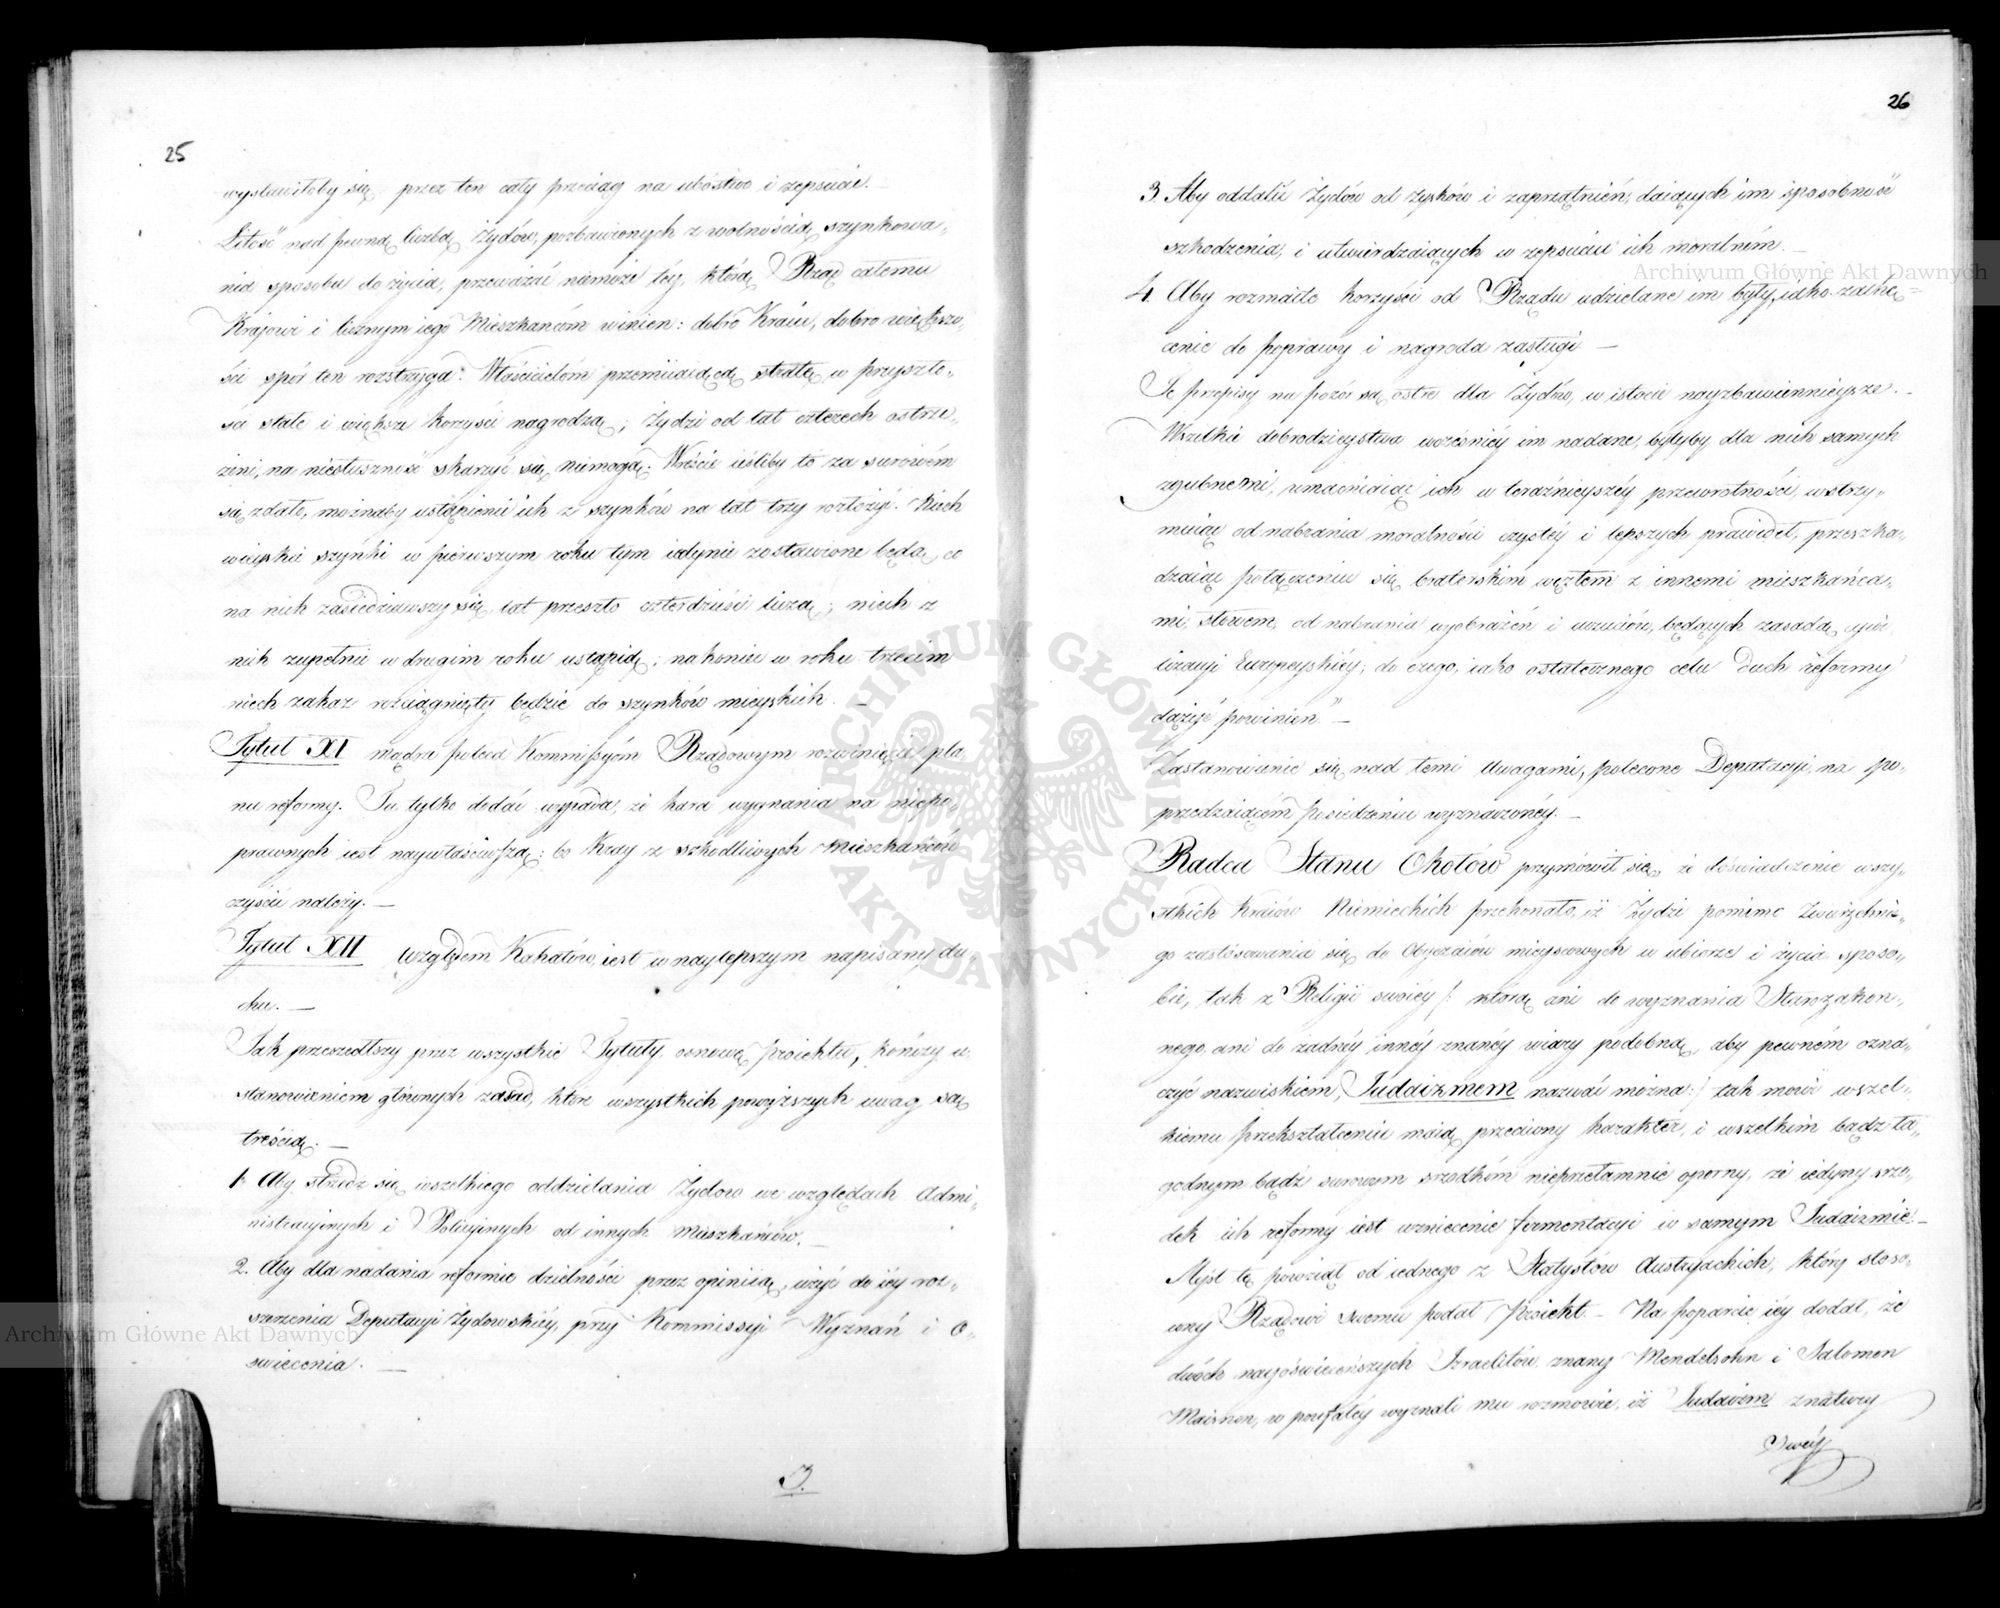 25
wystawiłoby się przez ten cały przeciąg na ubóstwo i zepsucie. —
Litość nad pewną liczbą Żydów, pozbawionych z wolnością szynkowa-
nia sposobu do życia, przeważać niemoże téy, którą Rząd całemu
Krajowi i licznym iego Mieszkańcom winien: dobro Kraiu, dobro większo-
ści spór ten rozstrzyga. Właścicielom przemiiaiącą stratę w przyszło-
ści stałe i większe korzyści nagrodzą; Żydzi od lat czterech ostrze-
żeni, na niesłuszność skarżyć się niemogą. Wreście ieśliby to za surowém
się zdało, możnaby ustąpienie ich z szynków na lat trzy rozłożyć. Niech
wieyskie szynki w pierwszym roku tym iedynie zostawione będą, co
na nich zasiedziawszy się, lat przeszło czterdzieści liczą; niech z
nich zupełnie w drugim roku ustąpią; nakoniec w roku trzecim
niech zakaz rozciągnięty będzie do szynków mieyskich. —
Tytuł XI mądrze poleca Kommissyóm Rządowym rozwinięcie pla-
nu reformy. Tu tylko dodać wypada, że kara wygnania na niepo-
prawnych iest naywłaściwszą: bo Kray z szkodliwych Mieszkańców
czyścić należy. —
Tytuł XII względem Kahałów, iest w naylepszym napisany du-
chu. —
Tak przeszedłszy przez wszystkie Tytuły osnowę Proiektu, kończy u-
stanowieniem głównych zasad, które wszystkich powyższych uwag są
treścią. —
1. Aby strzedz się wszelkiego oddzielania Żydow we względach Admi-
nistracyjnych i Policyjnych od innych Mieszkańców. —
2. Aby dla nadania reformie dzielności przez opiniią, użyć do iéy roz-
szerzenia Deputacyi Żydowskiéy, przy Kommissyi Wyznań i O-
świecenia. —
3.
26
3. Aby oddalić Żydów od zysków i zaprzątnień, daiących im sposobność
szkodzenia, i utwierdzaiących w zepsuciu ich moralném. —
4. Aby rozmaite korzyści od Rządu udzielane im były, iako zachę-
cenie do poprawy i nagroda zasługi —
Te przepisy na pozór są ostre dla Żydów, w istocie nayzbawiennieysze. —
Wszelkie dobrodzieystwa wcześniéy im nadane, byłyby dla nich samych
zgubnemi, umacniaiąc ich w teraźnieyszéy przewrotności, wstrzy-
muiąc od nabrania moralności czystéy i lepszych prawideł, przeszka-
dzaiąc połączeniu się braterskim węzłem z innemi mieszkańca-
mi, słowem, od nabrania wyobrażeń i uczuciów, będących zasadą cywi-
lizacyi Europeyskiéy; do czego, iako ostatecznego celu duch reformy
dążyć powinien." —
Zastanowienie się nad temi Uwagami, polecone Deputacyi, na po-
przedzaiącém posiedzeniu wyznaczonéy. —
Radca Stanu Okołów przymówił się, że doświadczenie wszy-
stkich Kraiów Niemieckich przekonało, iż Żydzi pomimo Zwierzchnie-
go zastósowania się do Obyczaiów mieyscowych w ubiorze i życia sposo-
bie, tak z Religii swoiéy /: którą ani do wyznania Starozakon-
nego, ani do żadnéy innéy znanéy wiary podobną, aby pewném ozna-
czyć nazwiskiem, Judaizmem nazwać można :/ tak mówi wszel-
kiemu przekształceniu maią przeciwny harakter, i wszelkim bądz ła-
godnym bądź surowym srzodkóm nieprzełamnie oporny, że iedyny srzo-
dek ich reformy iest wzniecenie fermentacyi w samym Judaizmie. —
Myśl tę powziął od iednego z Statystów Austryackich, który stoso-
wny Rządowi swemu podał Proiekt. — Na poparcie iéy dodał, że
dwóch nayoświecieńszych Izraelitów znany Mendelsohn i Salomon
Maimon, w poufałéy wyznali mu rozmowie, iż Judaizm z natury
Swéy
Archiwum Główne Akt Dawnych
Archiwum Główne Akt Dawnych
ARCHIWUM GŁÓWNE AKT DAWNYCH